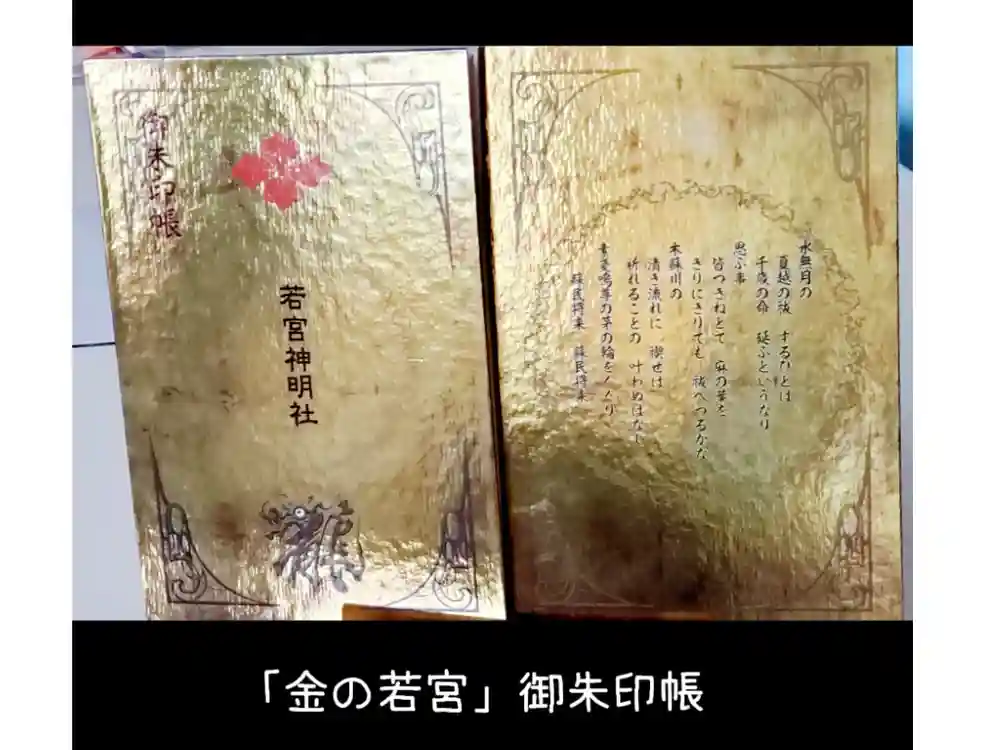 御朱印帳
若宮神明社
龍
水無月の
夏越の祓 するひとは
千歳の命 延ぶというなり
思ふ事
皆つきねとて 麻の葉を
きりにきりても 祓へつるかな
木蘇川の
清き流れに 禊せは
祈れることの 叶わぬはなし
素戔嗚尊の茅の輪をくくり
蘇民将来 蘇民将来
「金の若宮」御朱印帳